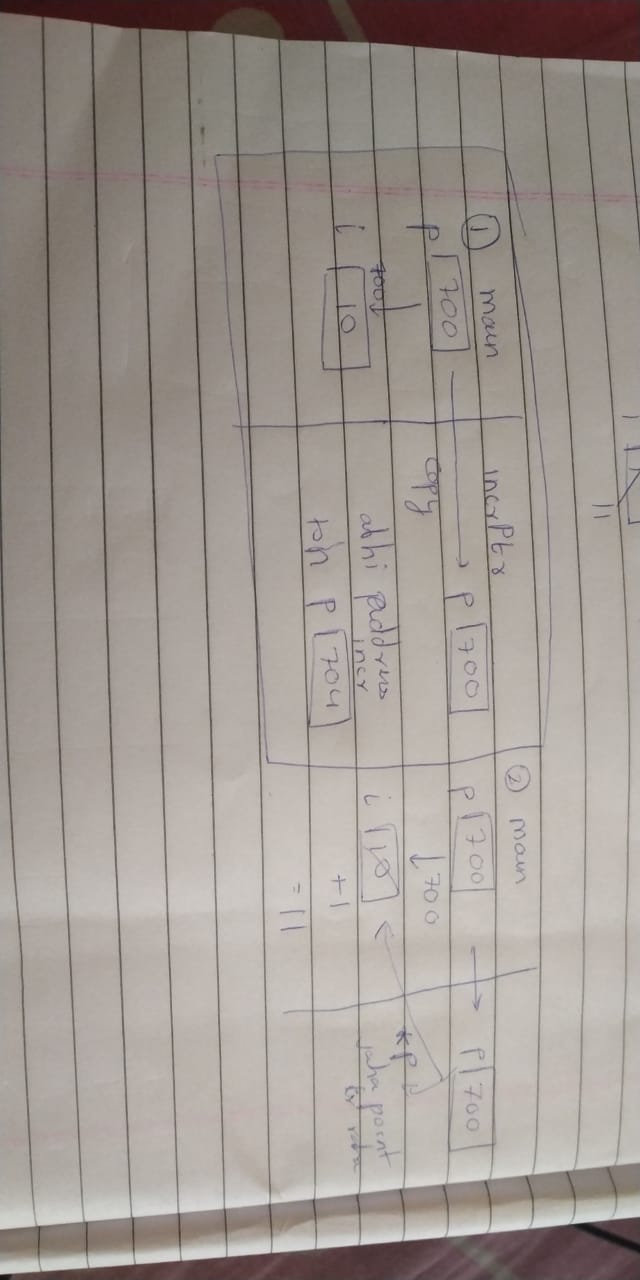 ① main
p 700
700 ↓
i 10
incrPtr
→ p 700
copy
abhi address
incr
toh p 704
② main
p 700
↓ 700
i 10
+1
= 11
→ p 700
*p
jaha point
kr raha
11